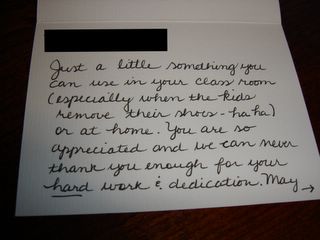 Just a little something you
can use in your class room
(especially when the kids
remove their shoes - ha ha)
or at home. You are so
appreciated and we can never
thank you enough for your
hard work & dedication. May →